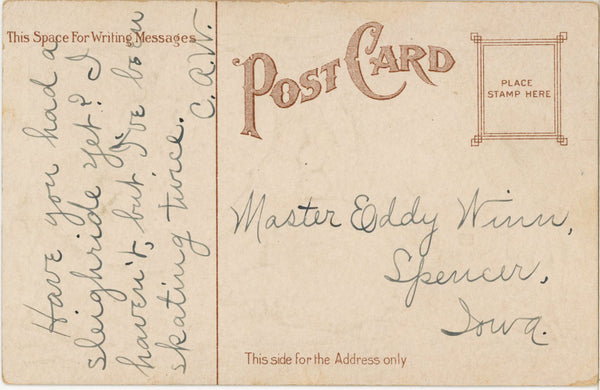 This Space For Writing Messages
Have you had a
sleighride yet? I
haven't, but I've been
skating twice.
C.A.W.
POST CARD
PLACE
STAMP HERE
Master Eddy Winn,
Spencer,
Iowa.
This side for the Address only